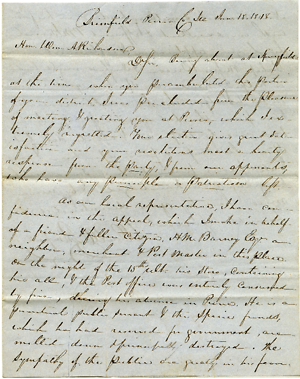 Brimfield, Peoria Co. Ills June 18. 1848.
Hon. Wm. A. Richardson
Sir, being absent at Springfield
at the time when you perambulated the
of your district I was precluded from the pleasure
of meeting & greeting you at Peoria, which I ex-
tremely regretted. Your election gives great sat-
isfaction and your resolutions meet a hearty
response from the Party, & from our opponents,
who have any Principle or Patriotism left.
As our local representative I have con-
fidence in this appeal, which I make in behalf
of a friend & fellow Citizen, H. M. Barney Esqr a
neighbor, merchant & Post Master in this place.
On the night of the 10th Ult his Store, containing
his all, & the Post Office was entirely consumed
by fire, during his absence in Peoria. He is a
public servant & the Specie funds,
which he had received for government, are
melted down & principally destroyed. The
Sympathy of the Public is largely in his favor.